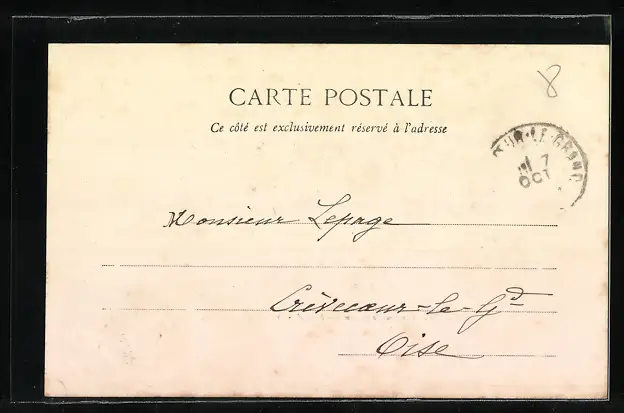 8
CARTE POSTALE
Ce côté est exclusivement réservé à l'adresse
ŒUR-LE-GRAND
7
OCT
Monsieur Lepage
Crèvecœur-le-Gd
Oise